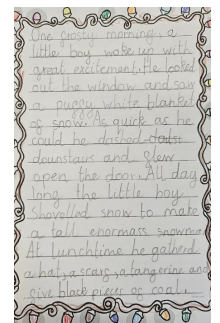 One frosty morning, a
little boy woke up with
great excitement. He looked
out the window and saw
a puffy white blanket
of snow. As quick as he
could he dashed
downstairs and flew
open the door. All day
long the little boy
shovelled snow to make
a tall enormass snowman.
At lunchtime he gatherd
a hat, a scarf, a tangerine and
five black pieces of coal.